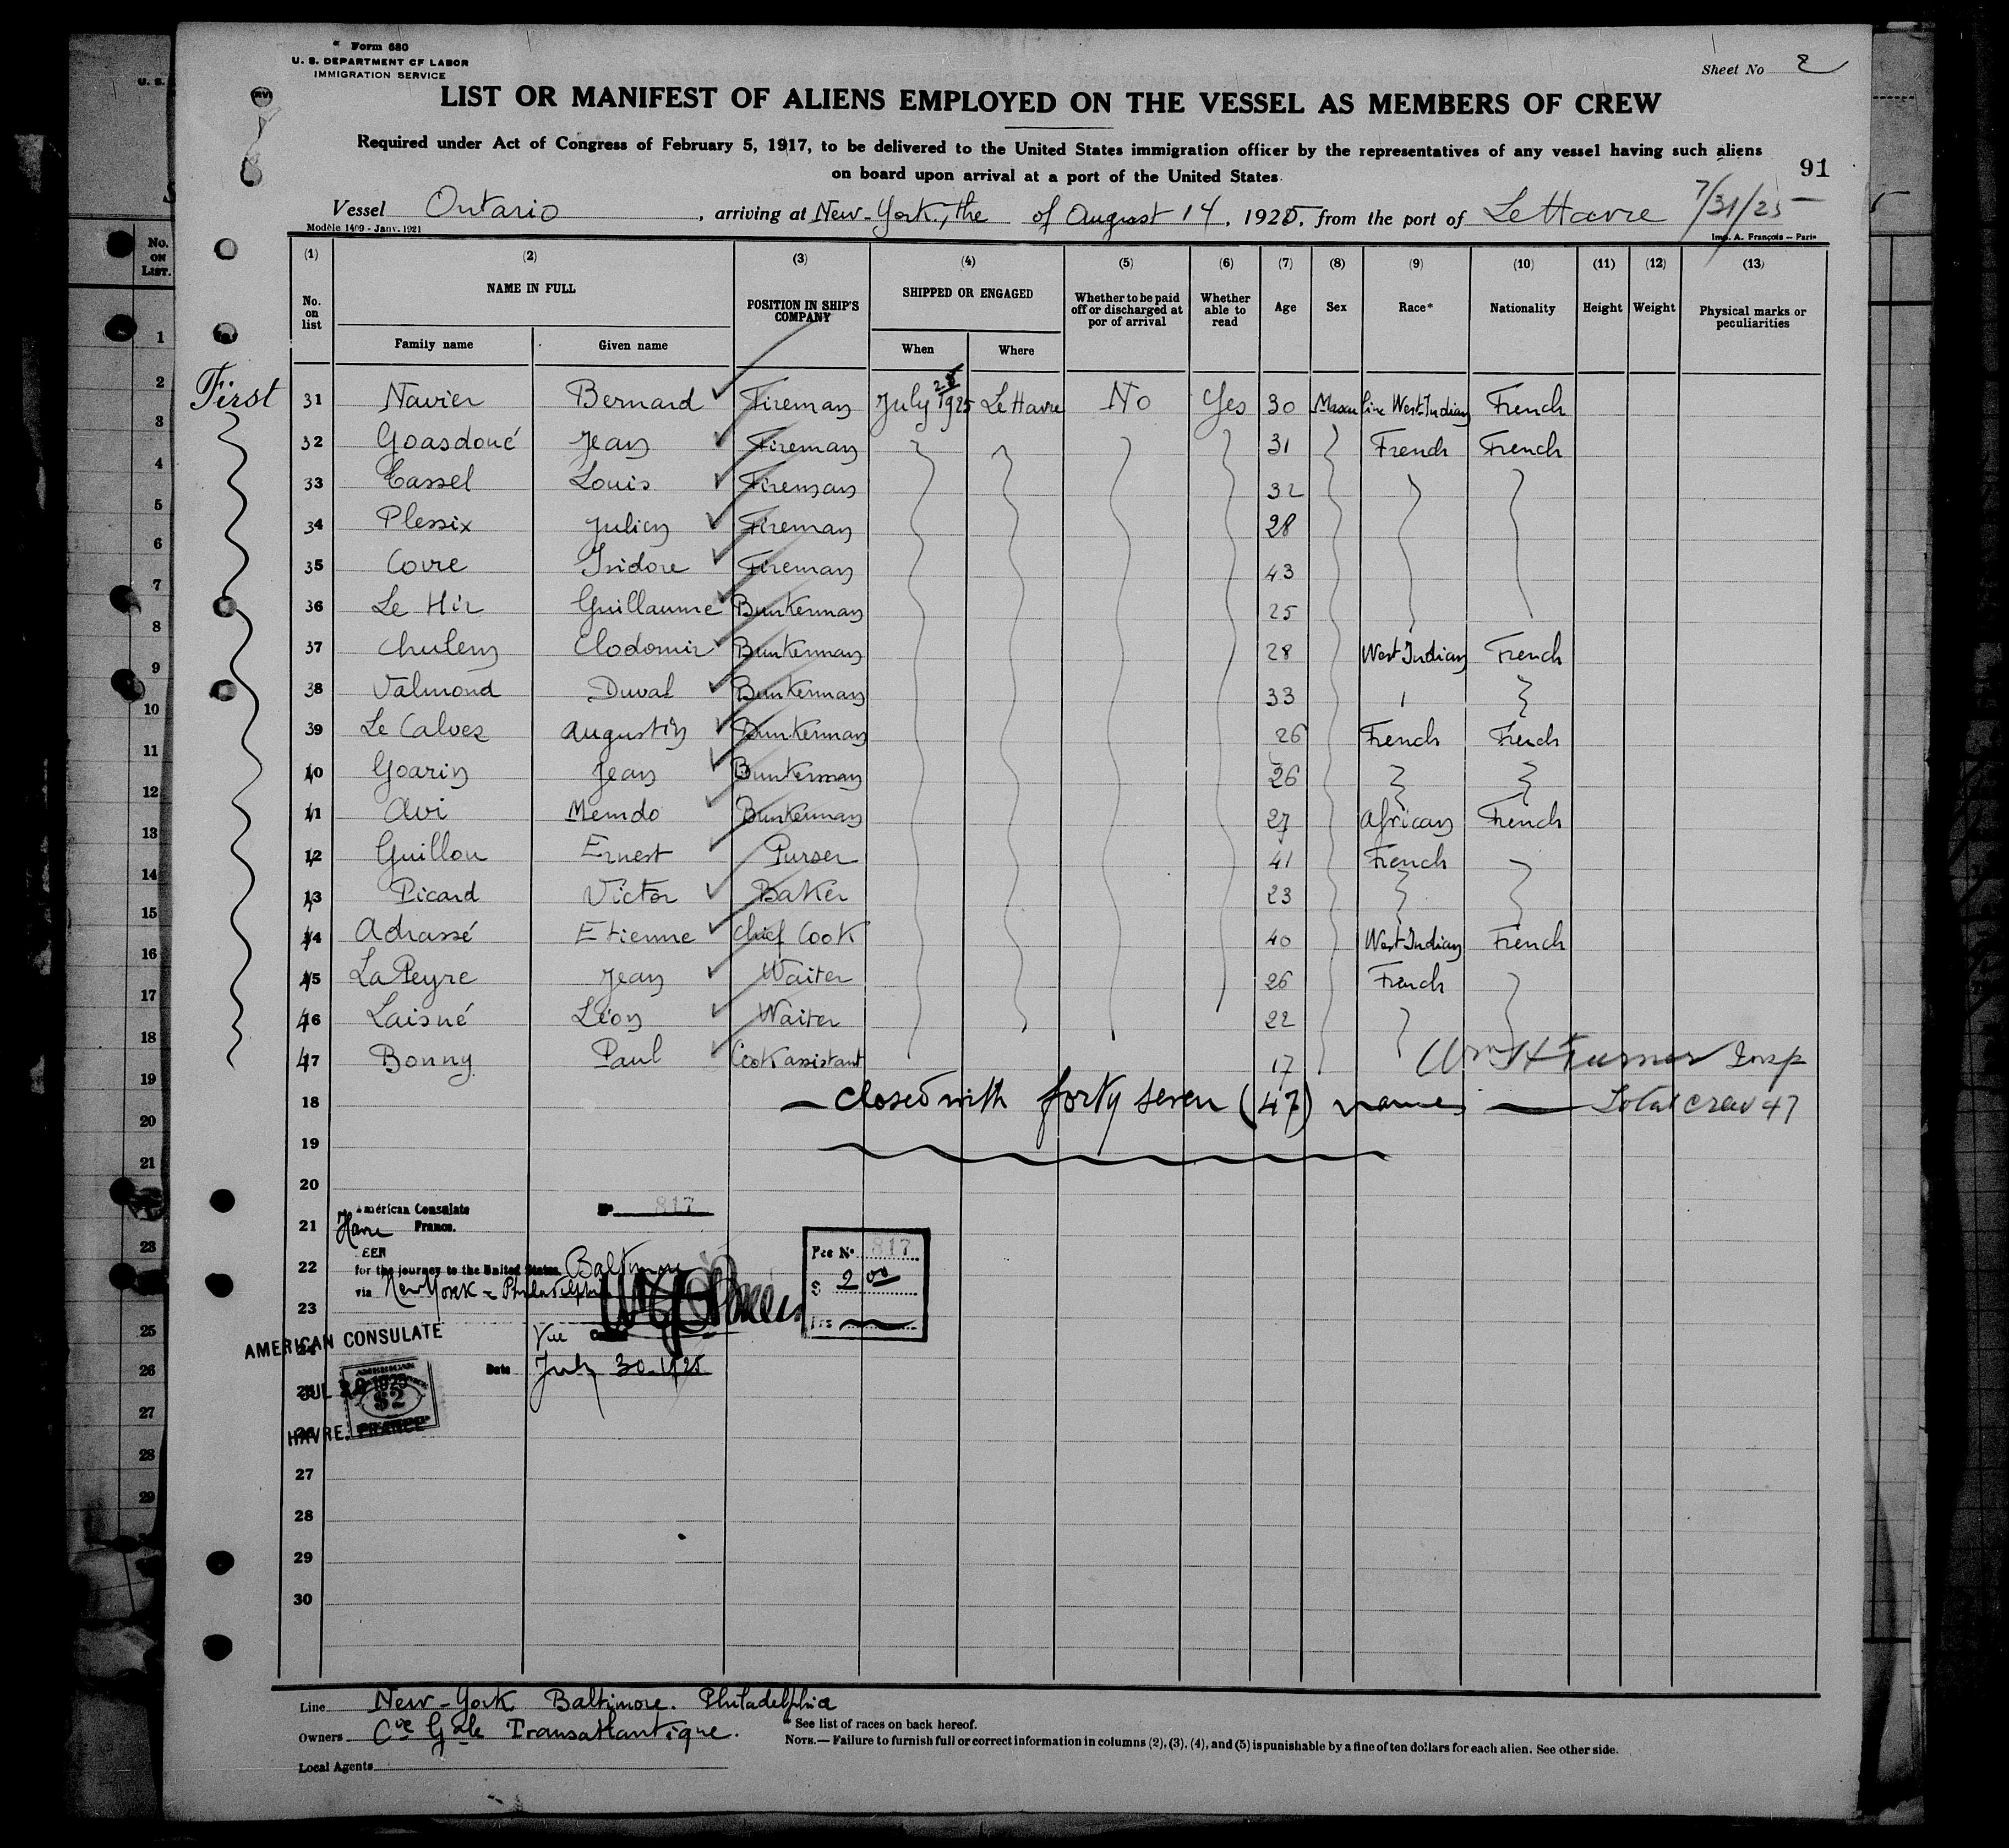 Form 680
U. S. DEPARTMENT OF LABOR
IMMIGRATION SERVICE
Sheet No 2
LIST OR MANIFEST OF ALIENS EMPLOYED ON THE VESSEL AS MEMBERS OF CREW
Required under Act of Congress of February 5, 1917, to be delivered to the United States immigration officer by the representatives of any vessel having such aliens
on board upon arrival at a port of the United States.
91
Vessel Ontario, arriving at New-York, the of August 14, 1925, from the port of Le Havre 7/31/25
Modèle 1409 - Janv. 1921
Imp. A. François - Paris
(1) (2) (3) (4) (5) (6) (7) (8) (9) (10) (11) (12) (13)
No. on list NAME IN FULL POSITION IN SHIP'S COMPANY SHIPPED OR ENGAGED Whether to be paid off or discharged at por of arrival Whether able to read Age Sex Race* Nationality Height Weight Physical marks or peculiarities
Family name Given name When Where
First 31 Navier Bernard Fireman July 28 1925 Le Havre No Yes 30 Masculine West-Indian French
32 Goasdoué Jean Fireman 31 French French
33 Cassel Louis Fireman 32
34 Plessix Julien Fireman 28
35 Covre Isidore Fireman 43
36 Le Hir Guillaume Bunkerman 25
37 Chulem Clodomir Bunkerman 28 West Indian French
38 Valmond Duval Bunkerman 33
39 Le Calvez Augustin Bunkerman 26 French French
10 Goarin Jean Bunkerman 26
11 Avi Memdo Bunkerman 27 African French
12 Guillou Ernest Purser 41 French
13 Picard Victor Baker 23
14 Adrassé Etienne Chief Cook 40 West Indian French
15 La Peyre Jean Waiter 26 French
46 Laisné Léon Waiter 22
47 Bonny Paul Cook assistant 17
Wm H Turner Insp
18 closed with forty seven (47) names Total crew 47
19
20
American Consulate No 817
21 Havre France.
Fee No 817
SEEN
22 for the journey to the United States Baltimore
$ 2 00
via New York - Philadelphia
23
Frs
AMERICAN CONSULATE
Date July 30-1925
JUL 30 1925
AMERICAN
$2
HAVRE, FRANCE
27
28
29
30
Line New-York Baltimore. Philadelphia
* See list of races on back hereof.
Owners Cie Gale Transatlantique.
NOTE.— Failure to furnish full or correct information in columns (2), (3), (4), and (5) is punishable by a fine of ten dollars for each alien. See other side.
Local Agents